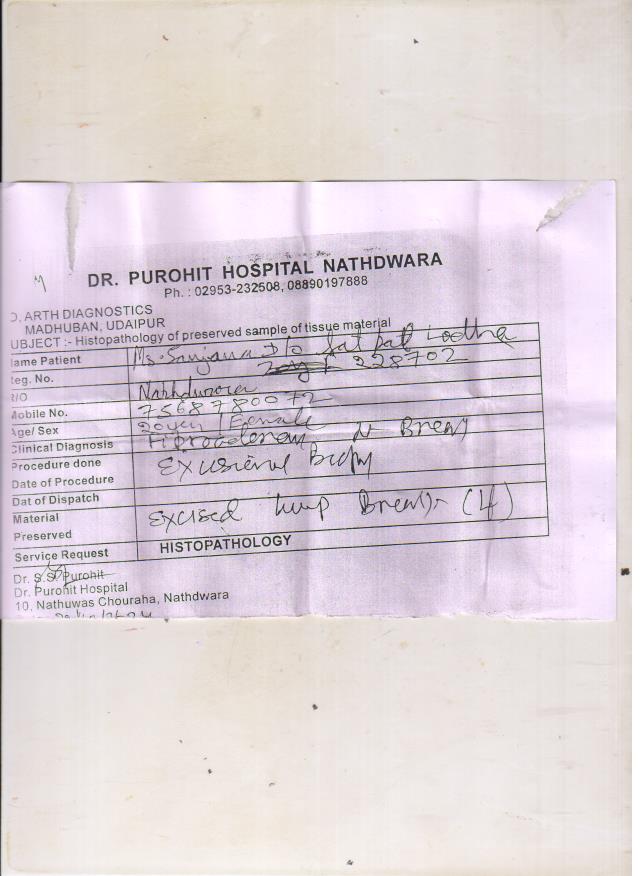 DR. PUROHIT HOSPITAL NATHDWARA
Ph. : 02953-232508, 08890197888
O, ARTH DIAGNOSTICS
MADHUBAN, UDAIPUR
UBJECT :- Histopathology of preserved sample of tissue material
ame Patient Ms. Sanjana D/o Lodha
eg. No. 228702
/O Nathdwara
obile No. 7568780072
Age/ Sex 20 year / Female
Clinical Diagnosis Breast
Procedure done Excisional Biopsy
Date of Procedure
Dat of Dispatch
Material Excised lump Breast (4)
Preserved
Service Request HISTOPATHOLOGY
Dr. S.S. Purohit
Dr. Purohit Hospital
10, Nathuwas Chouraha, Nathdwara